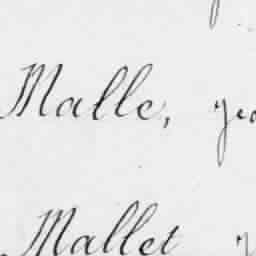 Malle,
Mallet